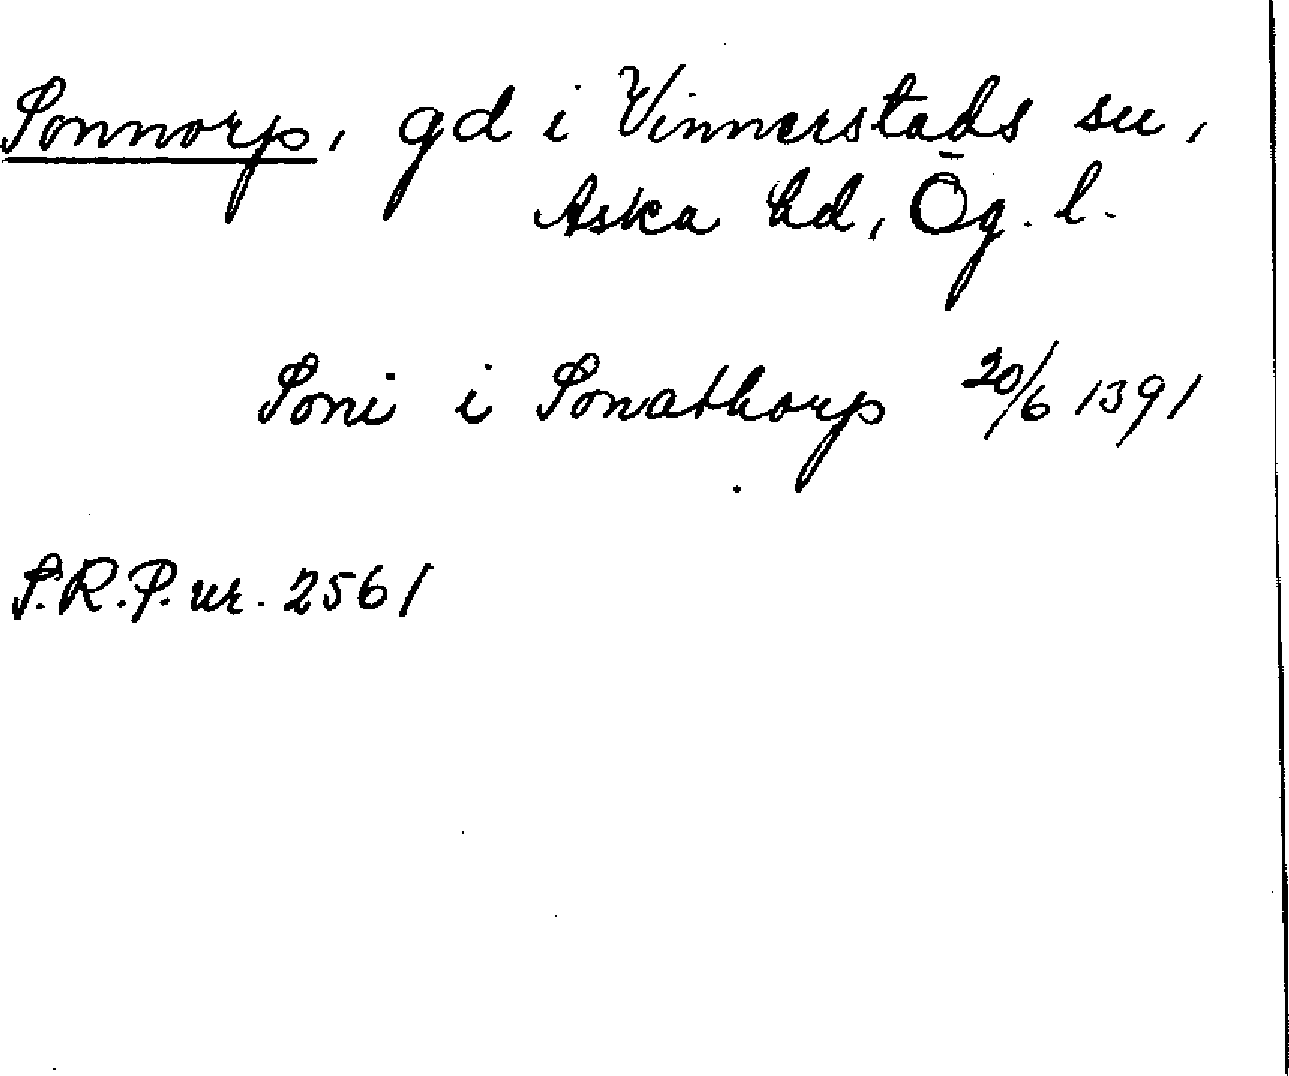 Sonnorp, gd i Vinnerstads sn,
Aska hd, Ög. l.
Soni i Sonathorp 20/6 1391
S.R.P. nr. 2561